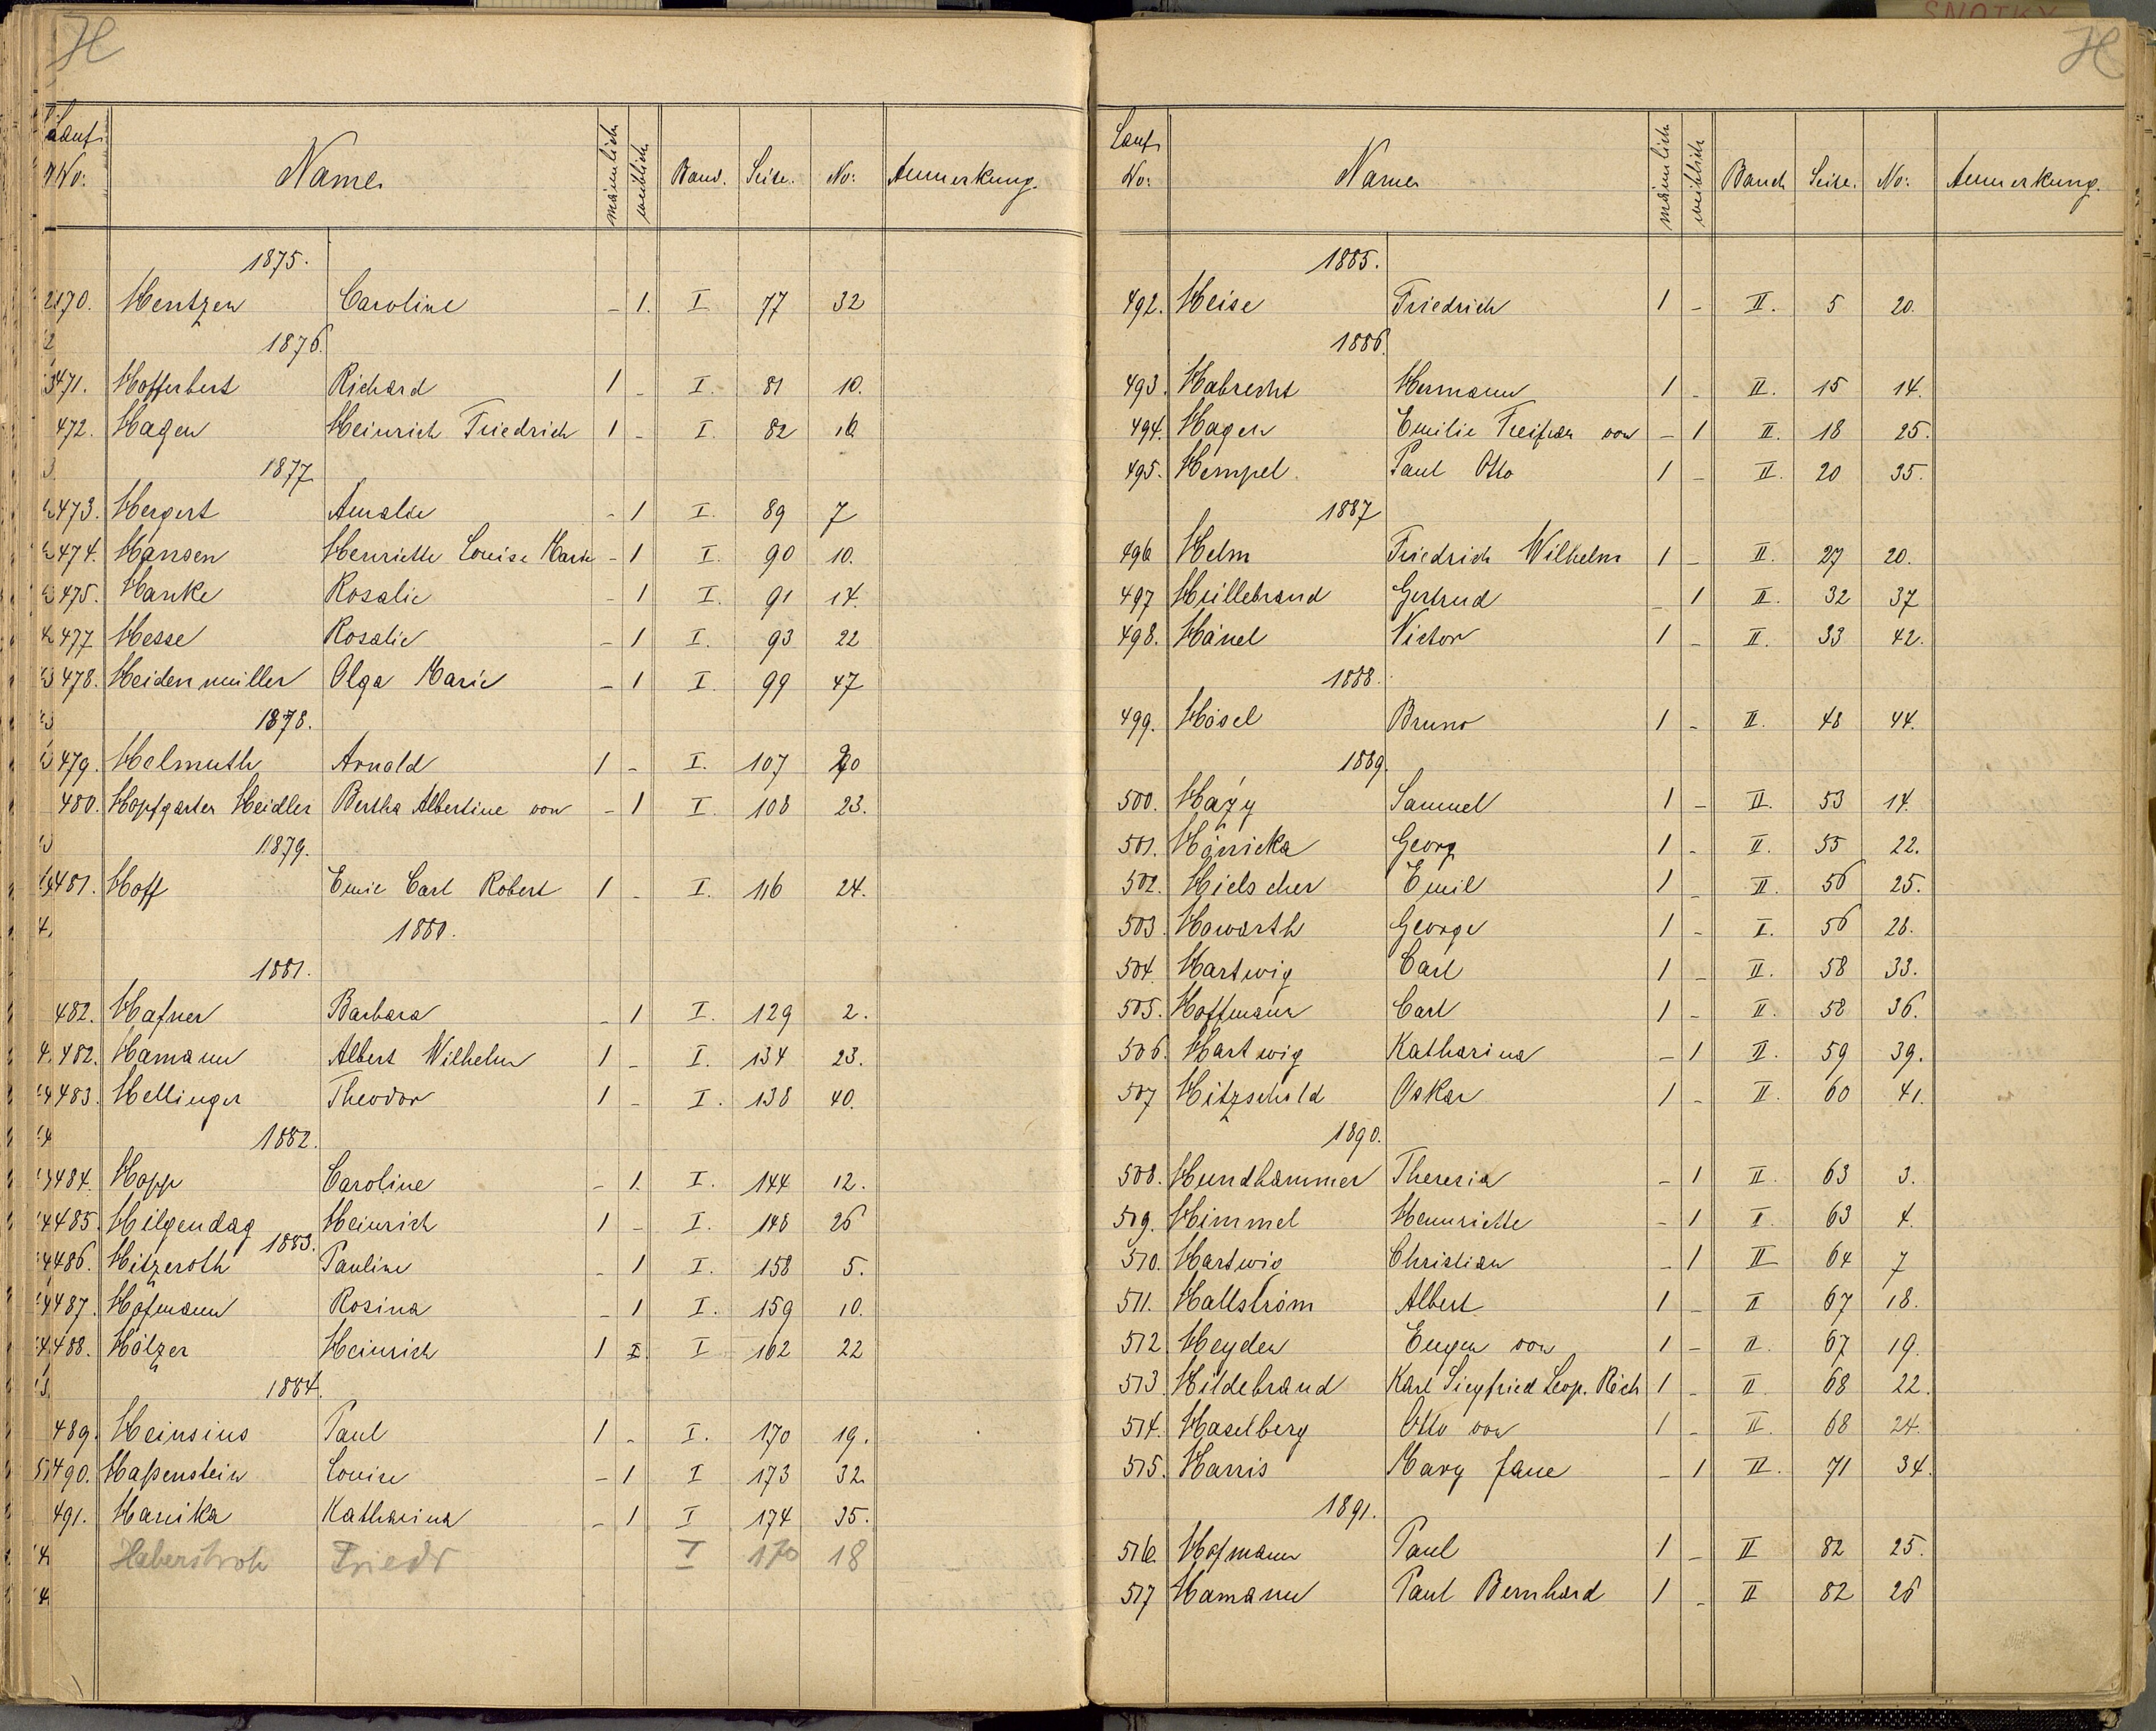 H
Lauf. No: Name männlich weiblich Band. Seite. No: Anmerkung.
1875.
470. Hentzen Caroline - 1. I. 77 32
1876.
471. Hofferbert Richard 1 - I. 81 10.
472. Hagen Heinrich Friedrich 1 - I. 82 16
1877
473. Hergert Amalie - 1 I. 89 7
474. Hansen Henriette Louise Marie - 1 I. 90 10.
475. Hanke Rosalie - 1 I. 91 14.
477 Hesse Rosalie - 1 I. 93 22
478. Heidenmüller Olga Marie - 1 I. 99 47
1878.
479. Helmuth Arnold 1 - I. 107 20
480. Hopfgarten Heidler Bertha Albertine von - 1 I. 108 23.
1879.
481. Hoff Emil Carl Robert 1 - I. 116 24.
1880.
1881.
482. Hafner Barbara - 1 I. 129 2.
482. Hamann Albert Wilhelm 1 - I. 134 23.
483. Hellinger Theodor 1 - I. 138 40.
1882.
484. Hopp Caroline - 1. I. 144 12.
485. Hilgendag Heinrich 1 - I. 148 26
1883.
486. Hitzeroth Pauline - 1 I. 158 5.
487. Hofmann Rosina - 1 I. 159 10.
488. Hölzer Heinrich 1 I I 162 22
1884.
489. Heinsius Paul 1 - I. 170 19.
490. Haßenstein Louise - 1 I 173 32.
491. Hanika Katharina - 1 I 174 35.
Haberstroh Friedr I 170 18
H
Lauf. No: Name männlich weiblich Band Seite. No: Anmerkung.
1885.
492. Heise Friedrich 1 - II. 5 20.
1886.
493. Habrecht Hermann 1 - II. 15 14.
494. Hagen Emilie Freifrau von - 1 II. 18 25.
495. Hempel Paul Otto 1 - II. 20 35.
1887
496 Helm Friedrich Wilhelm 1 - II. 27 20.
497 Hillebrand Gertrud - 1 II. 32 37
498. Hänel Victor 1 - II. 33 42.
1888.
499. Hösel Bruno 1 - II. 48 44.
1889.
500. Házy Samuel 1 - II. 53 14.
501. Hönicka Georg 1 - II. 55 22.
502. Hielscher Emil 1 - II. 56 25.
503. Howarth George 1 - I. 56 28.
504. Hartwig Carl 1 - II. 58 33.
505. Hoffmann Carl 1 - II. 58 36.
506. Hartwig Katharina - 1 II. 59 39.
507 Hitzschold Oskar 1 - II. 60 41.
1890.
508. Hundhammer Theresia - 1 II. 63 3.
509. Himmel Hennriette - 1 I. 63 4.
510. Hartwig Christian - 1 II 64 7
511. Hallström Albert 1 - II 67 18.
512 Heyden Eugen von 1 - II. 67 19.
513. Hildebrand Karl Siegfried Leop. Rich 1 - II. 68 22.
514. Haselberg Otto von 1 - II. 68 24.
515. Harris Mary Jane - 1 II. 71 34.
1891.
516. Hofmann Paul 1 - II 82 25.
517 Hamann Paul Bernhard 1 - II 82 26